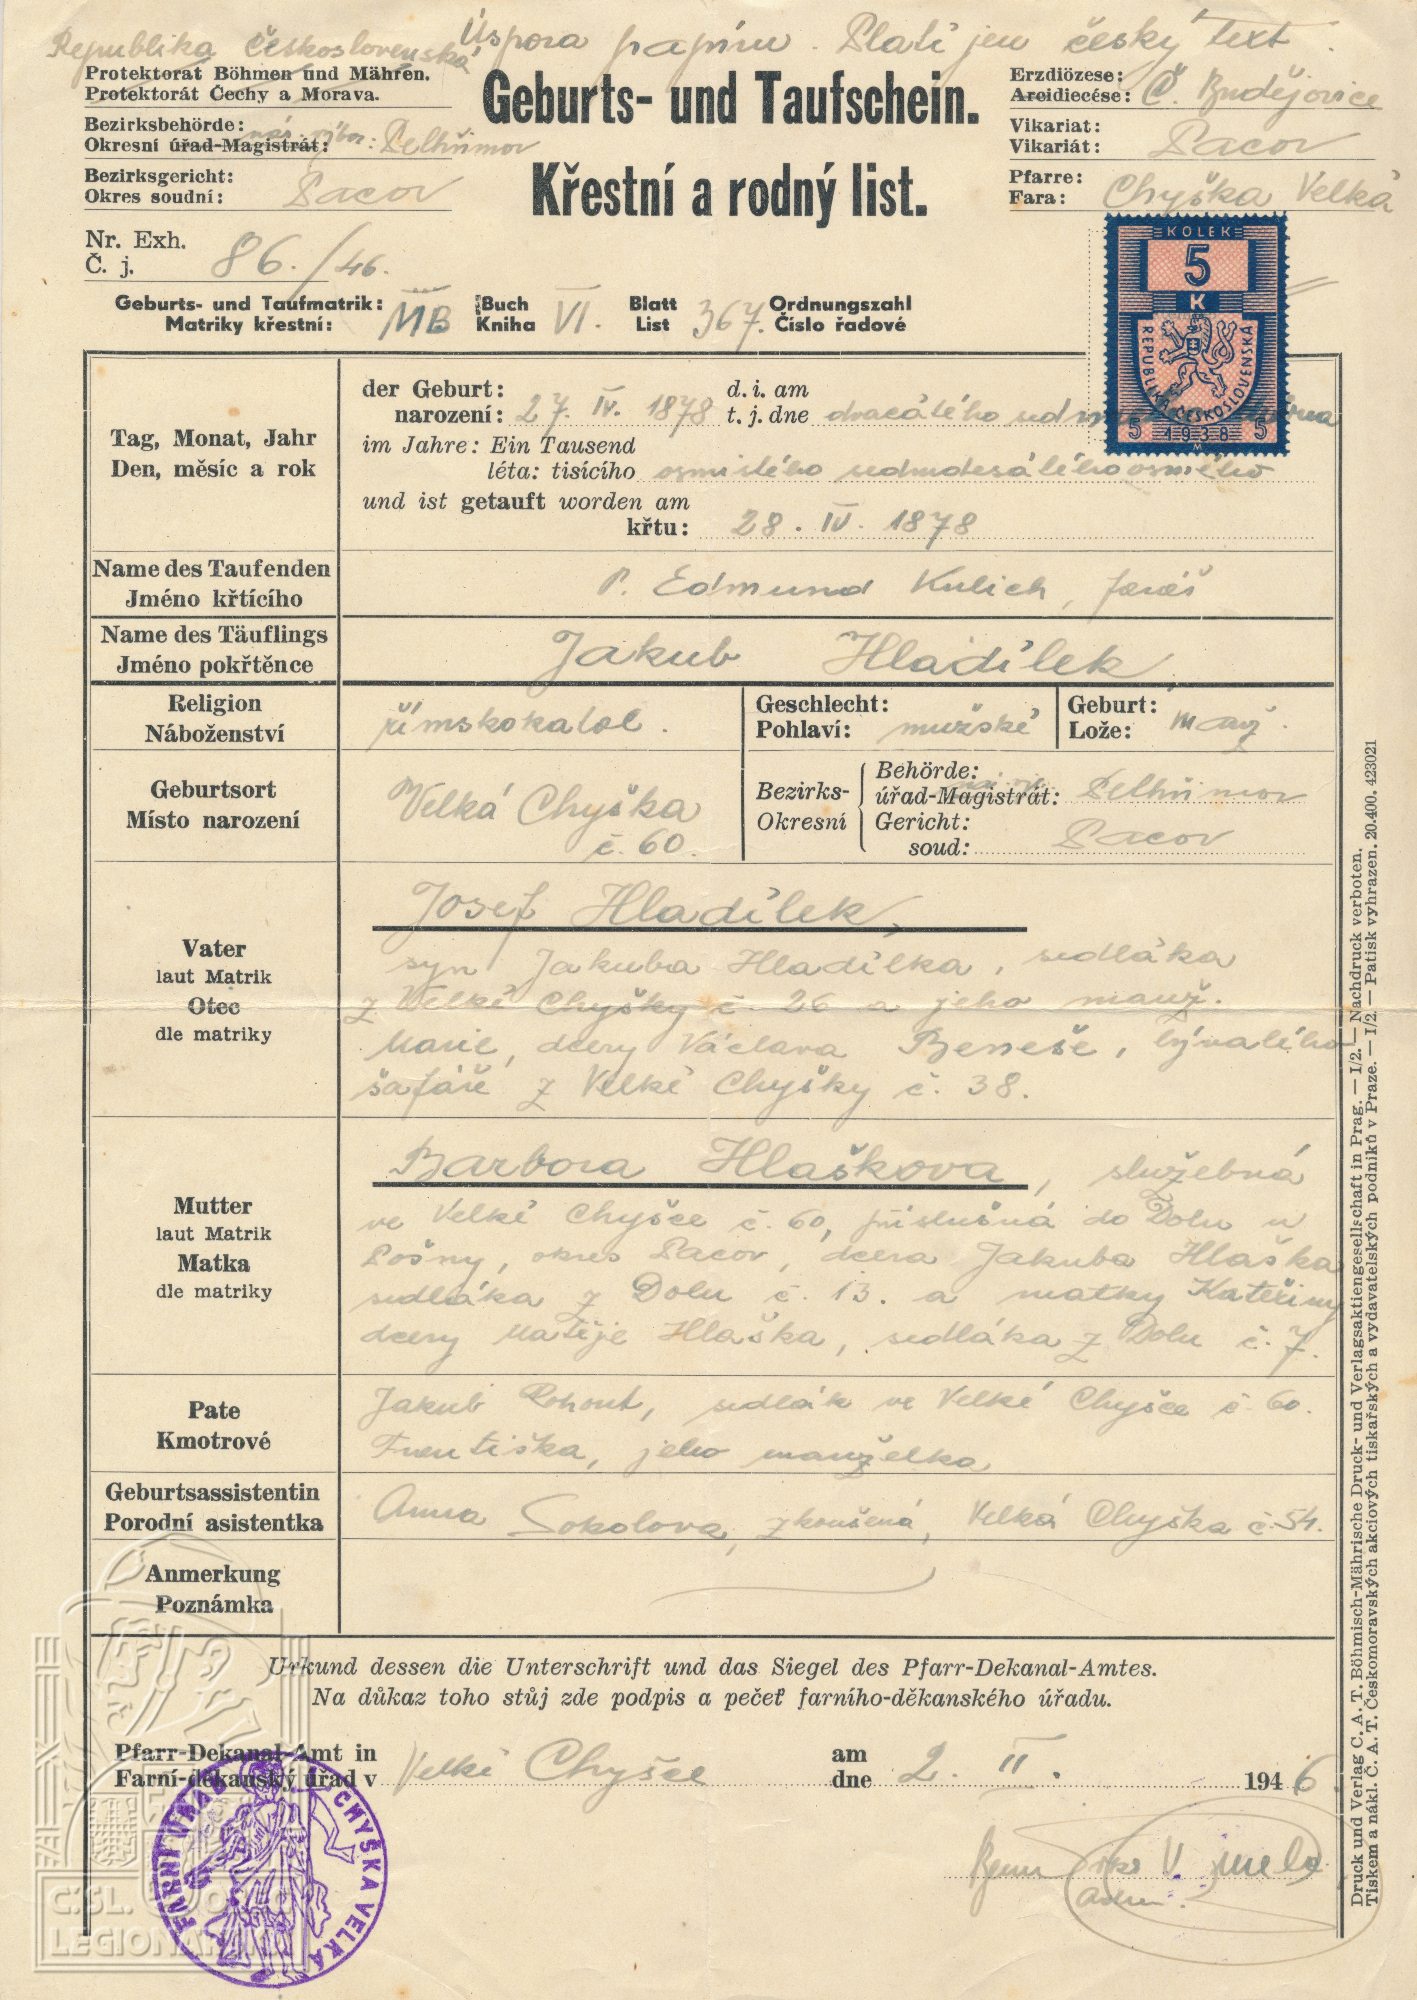 Republika Československá
Úspora papíru. Platí jen český text.
Protektorat Böhmen und Mähren.
Protektorát Čechy a Morava.
Bezirksbehörde:
Okresní úřad-Magistrát: nár. výbor: Pelhřimov
Bezirksgericht:
Okres soudní: Pacov
Nr. Exh.
Č. j. 86./46.
Geburts- und Taufschein.
Křestní a rodný list.
Erzdiözese:
Arcidiecése: Č. Budějovice
Vikariat:
Vikariát: Pacov
Pfarre:
Fara: Chyška Velká
KOLEK
5
K
REPUBLIKA ČESKOSLOVENSKÁ
5 1938 5
Geburts- und Taufmatrik: Buch Blatt Ordnungszahl
Matriky křestní: MB Kniha VI. List 367. Číslo řadové
Tag, Monat, Jahr
Den, měsíc a rok
der Geburt: d. i. am
narození: 27. IV. 1878 t. j. dne dvacátého
im Jahre: Ein Tausend
léta: tisícího osmistého sedmdesátého osmého
und ist getauft worden am
křtu: 28. IV. 1878
Name des Taufenden
Jméno křtícího
P. Edmund Kulich, farář
Name des Täuflings
Jméno pokřtěnce
Jakub Hladílek
Religion
Náboženství
římskokatol.
Geschlecht:
Pohlaví: mužské
Geburt:
Lože: manž.
Geburtsort
Místo narození
Velká Chyška
č. 60.
Bezirks- Behörde:
úřad-Magistrát: Pelhřimov
Okresní Gericht:
soud: Pacov
Vater
laut Matrik
Otec
dle matriky
Josef Hladílek,
syn Jakuba Hladílka, sedláka
z Velké Chyšky č. 26 a jeho manž.
Marie, dcery Václava Beneše, bývalého
šafáře z Velké Chyšky č. 38.
Mutter
laut Matrik
Matka
dle matriky
Barbora Hlaškova, služebná
ve Velké Chyšce č. 60, příslušná do Dolu u
Pošny, okres Pacov, dcera Jakuba Hlaška
sedláka z Dolu č. 13. a matky Kateřiny
dcery Matěje Hlaška, sedláka z Dolu č. 7.
Pate
Kmotrové
Jakub Kohout, sedlák ve Velké Chyšce č. 60.
Františka, jeho manželka
Geburtsassistentin
Porodní asistentka
Anna Sokolova, zkoušená, Velká Chyška č. 54.
Anmerkung
Poznámka
Urkund dessen die Unterschrift und das Siegel des Pfarr-Dekanal-Amtes.
Na důkaz toho stůj zde podpis a pečeť farního-děkanského úřadu.
Pfarr-Dekanal-Amt in am
Farní-děkanský úřad v Velké Chyšce dne 2. II. 1946.
FARNÍ ÚŘAD CHYŠKA VELKÁ
adm.
ČSL. OBEC
LEGIONÁŘSKÁ
Druck und Verlag C. A. T. Böhmisch-Mährische Druck- und Verlagsaktiengesellschaft in Prag. — I/2. — Nachdruck verboten.
Tiskem a nákl. Č. A. T. Českomoravských akciových tiskařských a vydavatelských podniků v Praze. — I/2. — Patisk vyhrazen. 20.400. 423021